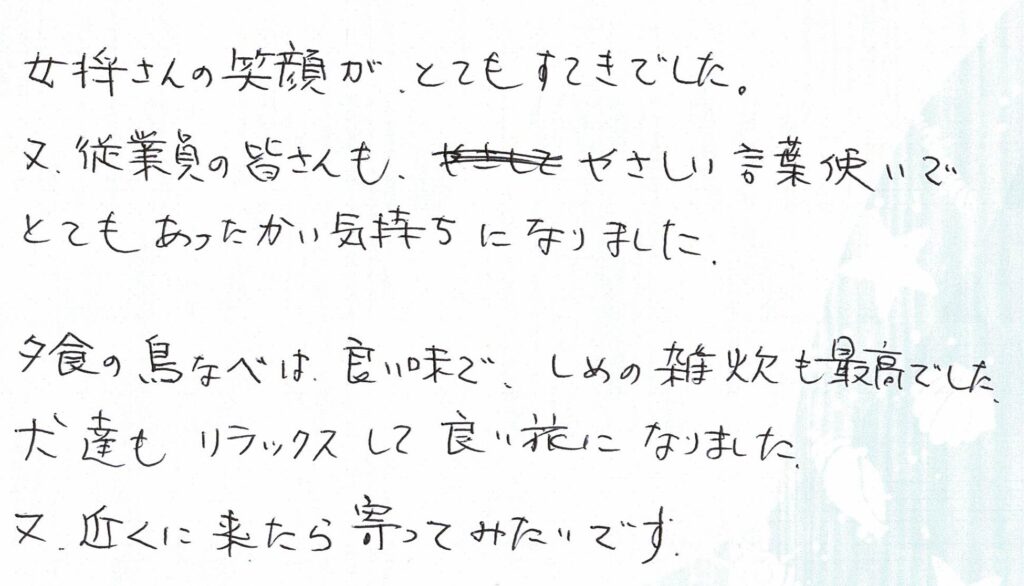 女将さんの笑顔が、とてもすてきでした。
又、従業員の皆さんも、やさしい言葉使いで
とてもあったかい気持ちになりました。
夕食の鳥なべは、良い味で、しめの雑炊も最高でした。
犬達もリラックスして良い旅になりました。
又、近くに来たら寄ってみたいです。